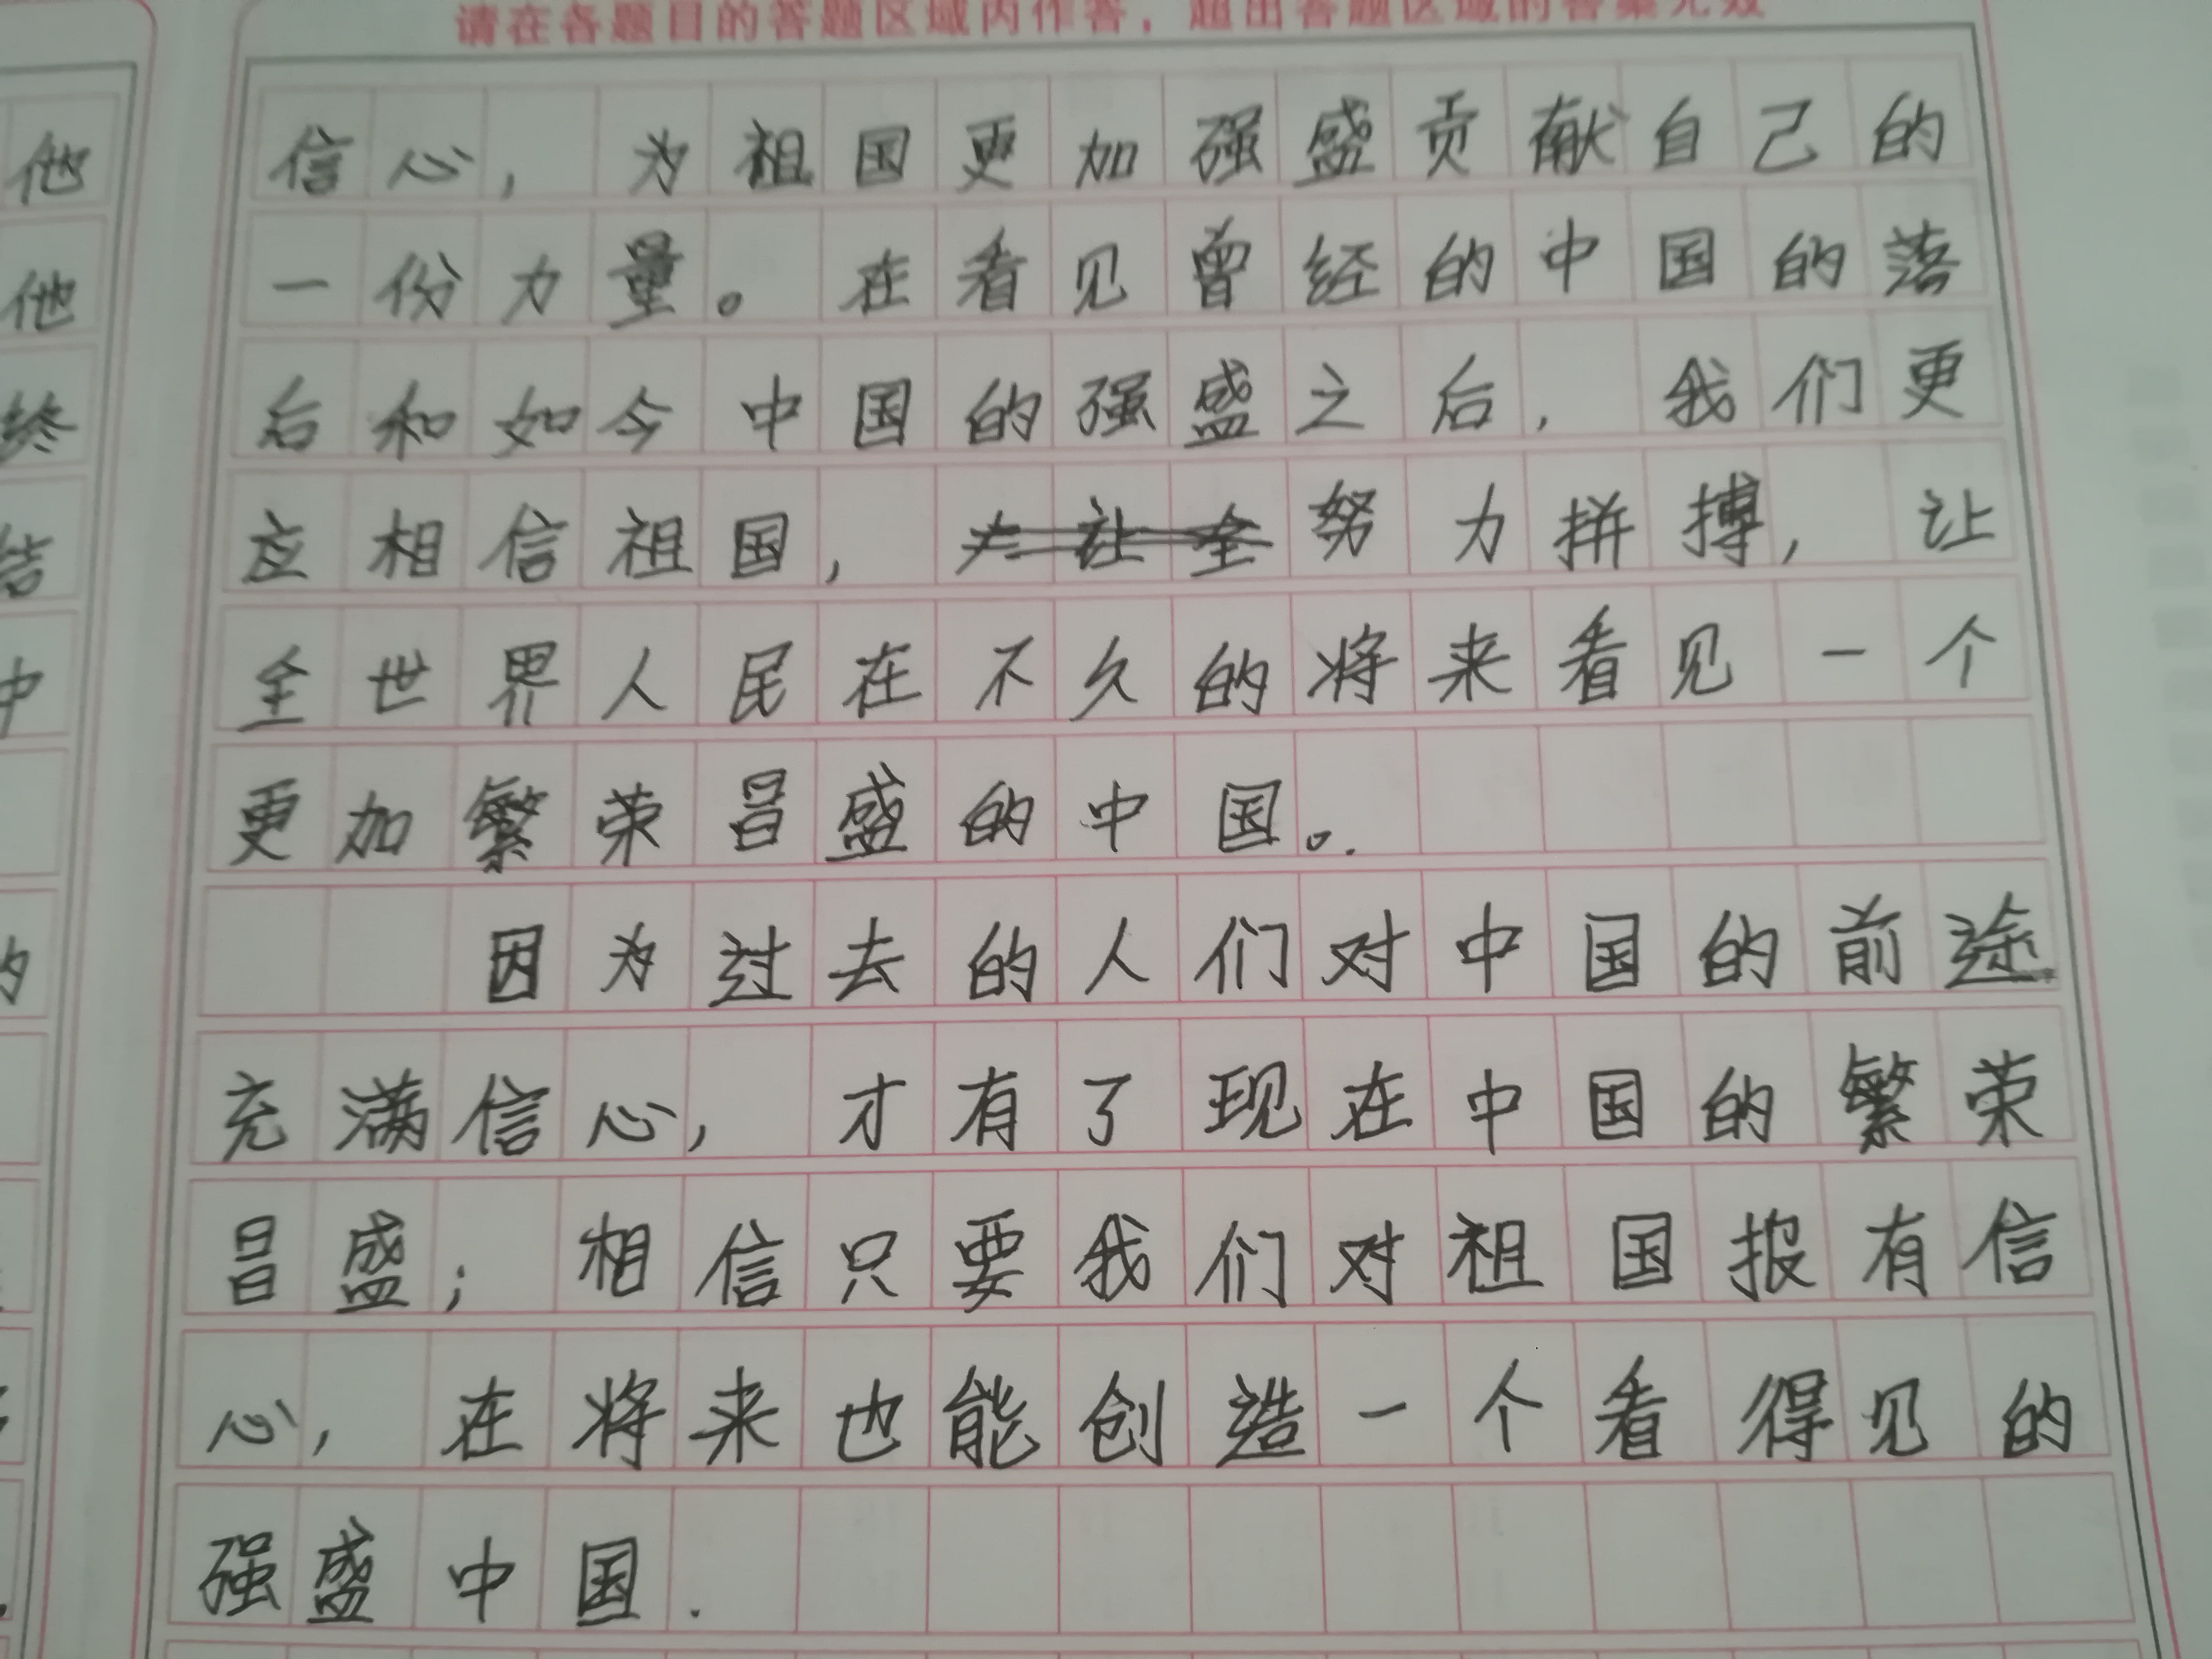 请在各题目的答题区域内作答，超出答题区域的答案无效
信心，为祖国更加强盛贡献自己的
一份力量。在看见曾经的中国的落
后和如今中国的强盛之后，我们更
应相信祖国，努力拼搏，让
全世界人民在不久的将来看见一个
更加繁荣昌盛的中国。
因为过去的人们对中国的前途
充满信心，才有了现在中国的繁荣
昌盛；相信只要我们对祖国报有信
心，在将来也能创造一个看得见的
强盛中国.
他
他
终
结
中